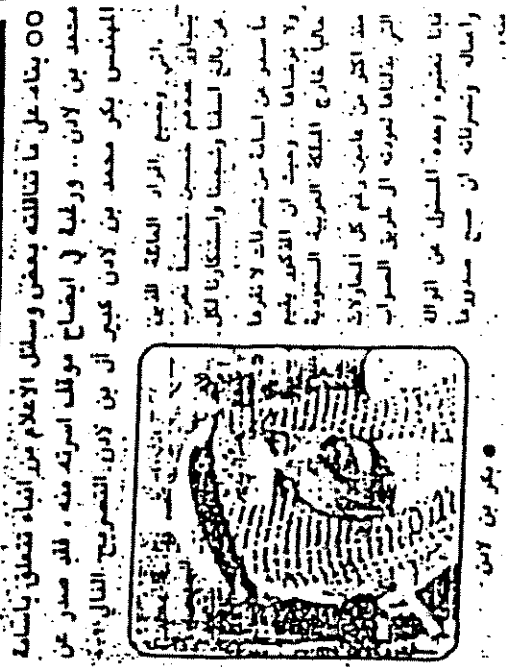 ○○ بناء على ما تناقلته بعض وسائل الاعلام من انباء تتعلق باسامة
محمد بن لادن .. ورغبة في ايضاح موقف اسرته منه ، فقد صدر عن
المهندس بكر محمد بن لادن كبير آل بن لادن التصريح التالي :
انني وجميع افراد العائلة الذين
يتجاوز عددهم خمسين شخصاً نعرب
عن بالغ اسفنا وشجبنا واستنكارنا لكل
ما صدر عن اسامة من تصرفات لا نقرها
ولا نرضاها .. وحيث ان المذكور يقيم
حالياً خارج المملكة العربية السعودية
منذ اكثر من عامين رغم كل المحاولات
التي بذلناها لعودته الى طريق الصواب
فاننا نعتبره وحده المسئول عن اقواله
وأعماله وتصرفاته ان صح صدورها
● بكر بن لادن